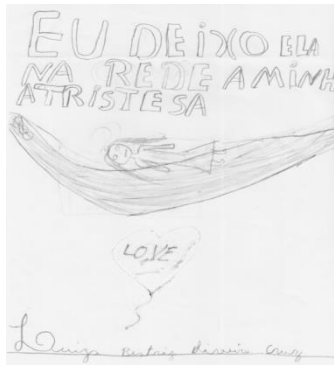 EU DEIXO ELA
NA REDE A MINH
ATRISTESA
LOVE
Luiza Beatriz Pereira Cruz